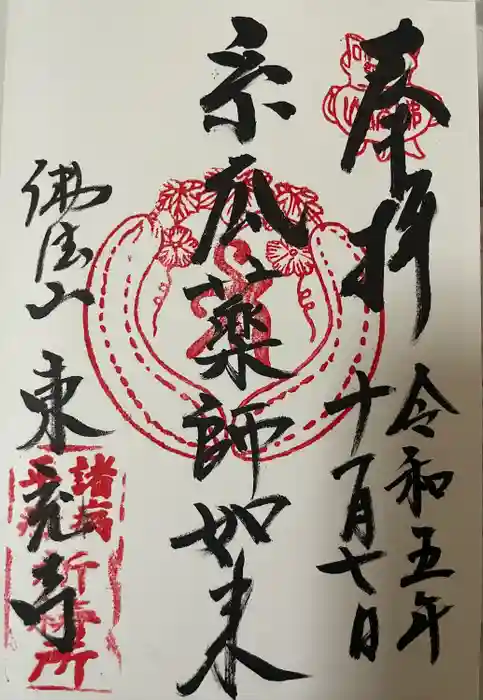 奉拝
令和五年
十一月七日
糸瓜薬師如来
佛法山
東光寺
諸病
祈祷所